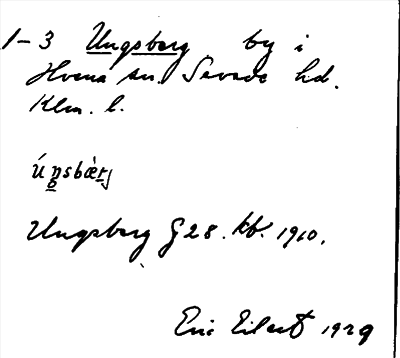 1-3 Ungsberg by i
Hvena sn. Sevede hd.
Klm. l.
Ungsberg G 28. kb. 1910.
Eric Eilert 1929